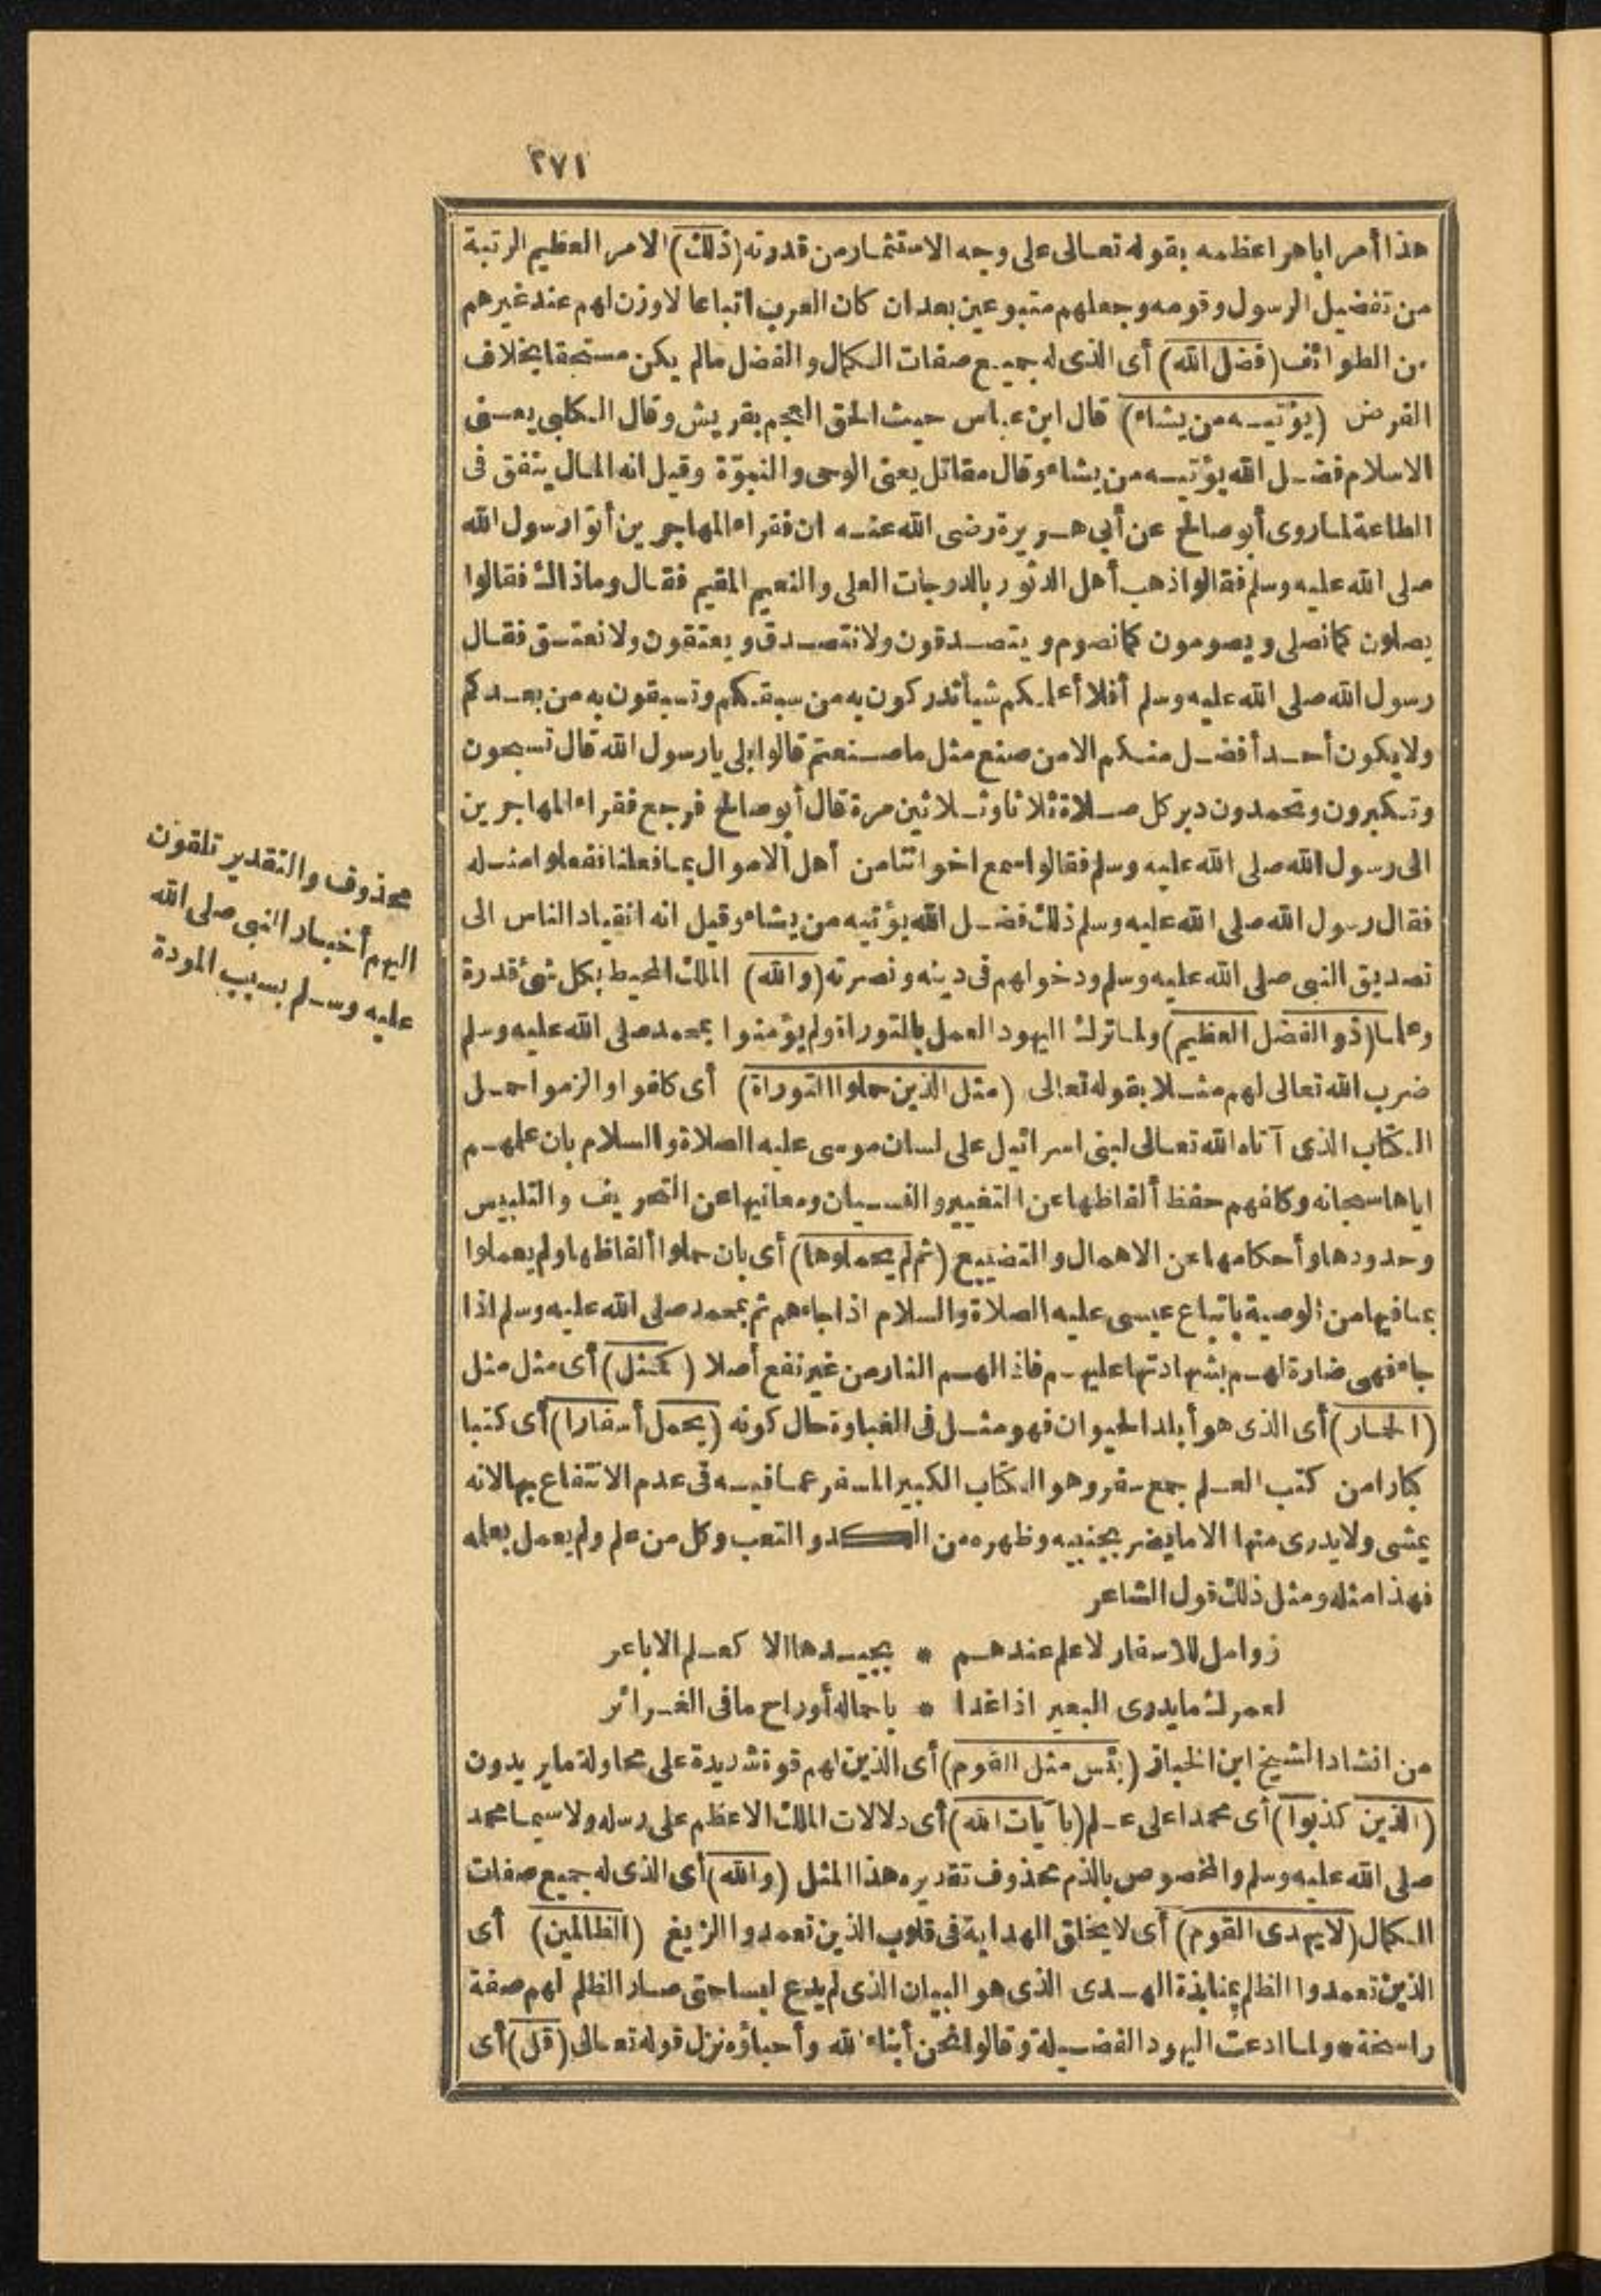 ٢٧١
هذا أمرا باهرا عظمه بقوله تعالى على وجه الاستثمار من قدرته (ذلك) الامر العظيم الرتبة
من تفضيل الرسول وقومه وجعلهم متبوعين بعد ان كان العرب اتباعا لا وزن لهم عند غيرهم
من الطوائف (فضل الله) أى الذى له جميع صفات الكمال والفضل مالم يكن مستحقا بخلاف
الفرض (يؤتيه من يشاء) قال ابن عباس حيث الحق العجم بقريش وقال الكلبى يعنى
الاسلام فضل الله يؤتيه من يشاء وقال مقاتل يعنى الوحى والنبوّة وقيل انه المال ينفق فى
الطاعة لما روى أبو صالح عن أبى هريرة رضى الله عنه ان فقراء المهاجرين أتوا رسول الله
صلى الله عليه وسلم فقالوا ذهب أهل الدثور بالدرجات العلى والنعيم المقيم فقال وما ذاك فقالوا
يصلون كما نصلى ويصومون كما نصوم ويتصدقون ولا نتصدق ويعتقون ولا نعتق فقال
رسول الله صلى الله عليه وسلم أفلا أعلمكم شيأ تدركون به من سبقكم وتسبقون به من بعدكم
ولا يكون أحد أفضل منكم الا من صنع مثل ما صنعتم قالوا بلى يا رسول الله قال تسبحون
وتكبرون وتحمدون دبر كل صلاة ثلاثا وثلاثين مرة قال أبو صالح فرجع فقراء المهاجرين
الى رسول الله صلى الله عليه وسلم فقالوا سمع اخواننا من أهل الاموال بما فعلنا ففعلوا مثله
فقال رسول الله صلى الله عليه وسلم ذلك فضل الله يؤتيه من يشاء وقيل انه انقياد الناس الى
تصديق النبى صلى الله عليه وسلم ودخولهم فى دينه ونصرته (والله) الملك المحيط بكل شئ قدرة
وعلما (ذو الفضل العظيم) ولما ترك اليهود العمل بالتوراة ولم يؤمنوا بمحمد صلى الله عليه وسلم
ضرب الله تعالى لهم مثلا بقوله تعالى (مثل الذين حملوا التوراة) أى كلفوا والزموا حمل
الكتاب الذى آتاه الله تعالى لبنى اسرائيل على لسان موسى عليه الصلاة والسلام بان علمهم
اياها سبحانه وكلفهم حفظ ألفاظها عن التغيير والنسيان ومعانيها عن التحريف والتلبيس
وحدودها وأحكامها عن الاهمال والتضييع (ثم لم يحملوها) أى بان حملوا ألفاظها ولم يعملوا
بما فيها من الوصية باتباع عيسى عليه الصلاة والسلام اذا جاءهم ثم بمحمد صلى الله عليه وسلم اذا
جاء فهى ضارة لهم بشهادتها عليهم فاذا لهم النار من غير نفع أصلا (كمثل) أى مثل مثل
(الحمار) أى الذى هو أبلد الحيوان فهو مثل فى الغباوة حال كونه (يحمل أسفارا) أى كتبا
كبارا من كتب العلم جمع سفر وهو الكتاب الكبير المسفر عما فيه فى عدم الانتفاع بها لانه
يمشى ولا يدرى منها الا ما يضر بجنبيه وظهره من الكد والتعب وكل من علم ولم يعمل بعلمه
فهذا مثله ومثل ذلك قول الشاعر
زوامل للاسفار لا علم عندهم * بجيدها الا كعلم الاباعر
لعمرك ما يدرى البعير اذا غدا * باحماله أو راح ما فى الغرائر
من انشاد الشيخ ابن الخباز (بئس مثل القوم) أى الذين لهم قوة شديدة على محاولة ما يريدون
(الذين كذبوا) أى محمدا على علم (بآيات الله) أى دلالات الملك الاعظم على رسله ولا سيما محمد
صلى الله عليه وسلم والمخصوص بالذم محذوف تقديره هذا المثل (والله) أى الذى له جميع صفات
الكمال (لا يهدى القوم) أى لا يخلق الهداية فى قلوب الذين تعمدوا الزيغ (الظالمين) أى
الذين تعمدوا الظلم بمنابذة الهدى الذى هو البيان الذى لم يدع لبسا حتى صار الظلم لهم صفة
راسخة * ولما ادعت اليهود الفضيلة وقالوا نحن أبناء الله وأحباؤه نزل قوله تعالى (قل) أى
محذوف والتقدير تلقون
اليهم أخبار النبى صلى الله
عليه وسلم بسبب المودة